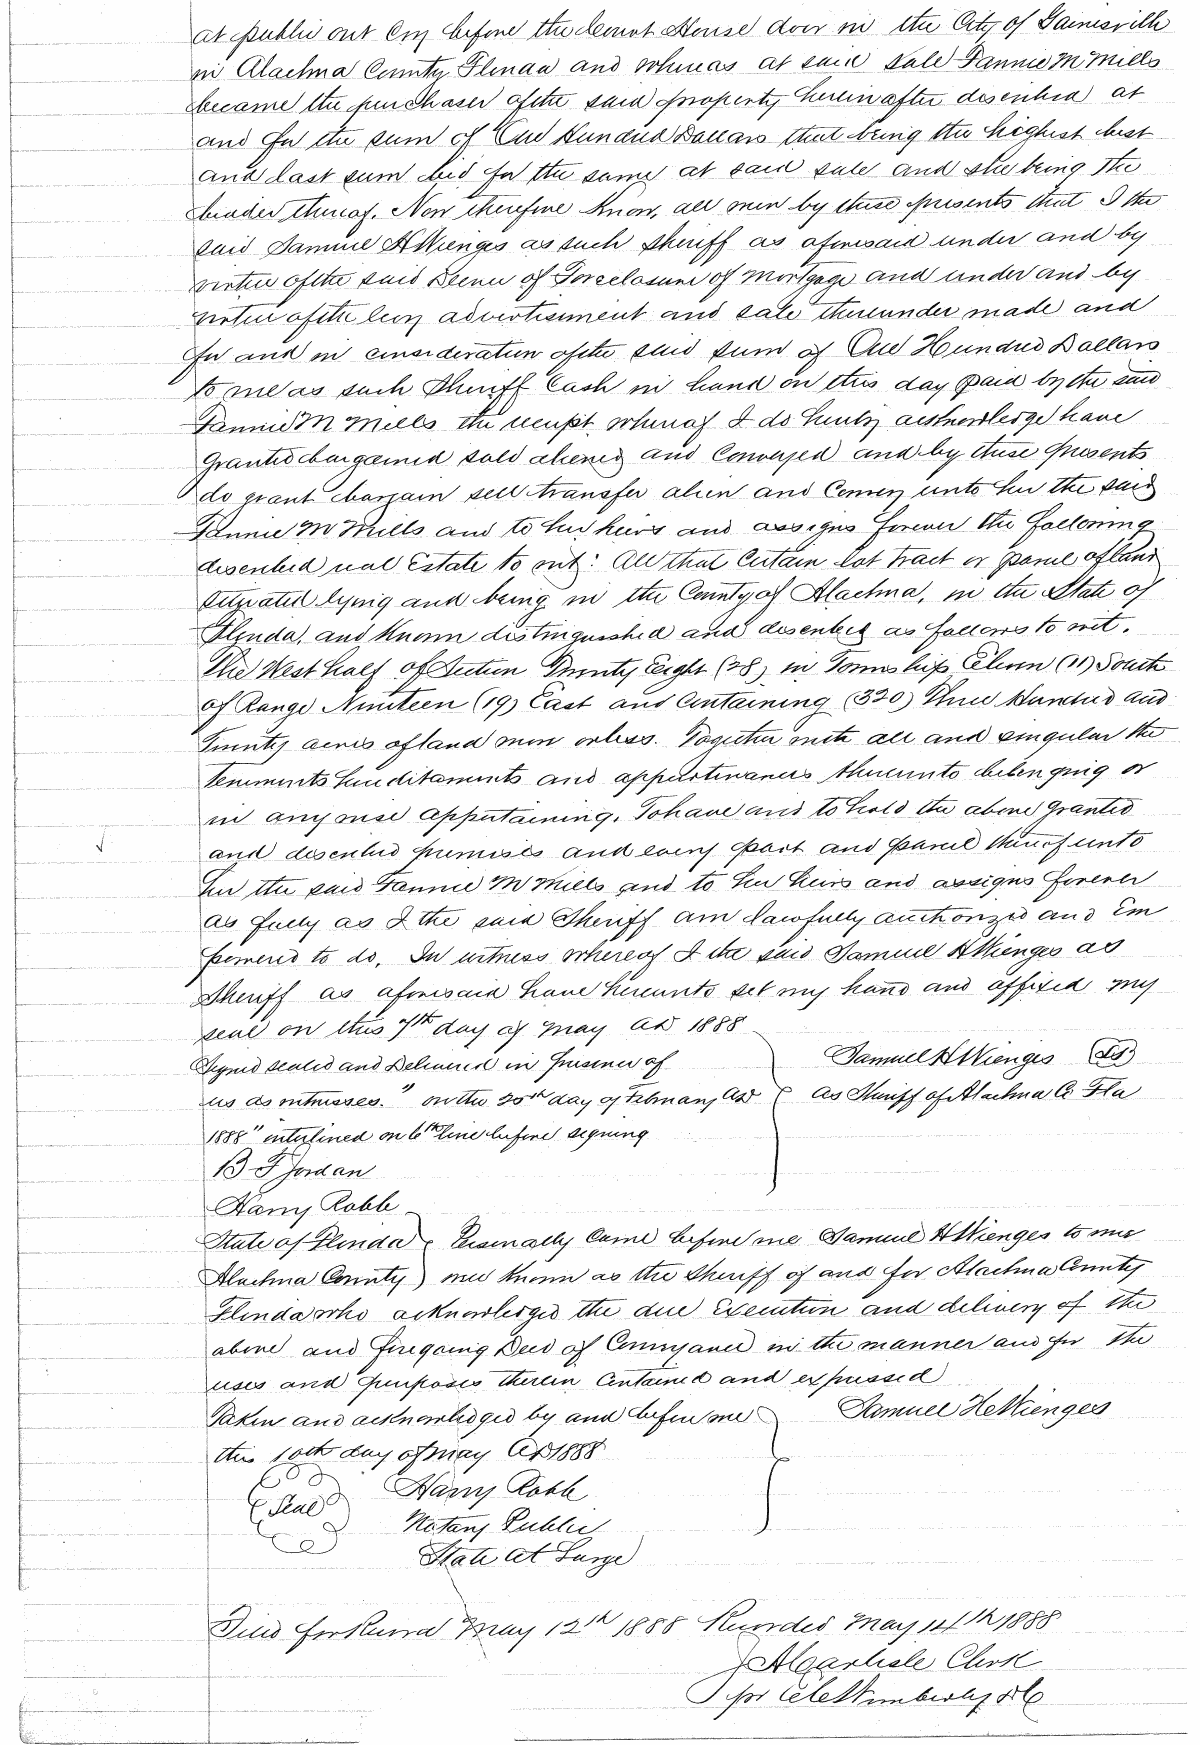 at public out cry before the Court House door in the City of Gainesville
in Alachua County Florida and whereas at said sale Fannie M Mills
became the purchaser of the said property herein after described at
and for the sum of One Hundred Dollars that being the highest best
and last sum bid for the same at said sale and she being the
bidder thereof. Now therefore Know, all men by these presents that I the
said Samuel H Wienges as such Sheriff as aforesaid under and by
virtue of the said Decree of Foreclosure of Mortgage and under and by
virtue of the levy advertisement and sale thereunder made and
for and in consideration of the said sum of One Hundred Dollars
to me as such Sheriff Cash in hand on this day paid by the said
Fannie M Mills the receipt whereof I do hereby acknowledge have
Granted bargained sold aliened and Conveyed and by these presents
do grant bargain sell transfer alien and Convey unto her the said
Fannie M Mills and to her heirs and assigns forever the following
described real Estate to wit: All that Certain lot tract or parcel of land
situated lying and being in the County of Alachua, in the State of
Florida, and Known distinguished and described as follows to wit.
The West half of Section Twenty Eight (28) in Township Eleven (11) South
of Range Nineteen (19) East and Containing (320) Three Hundred and
Twenty acres of land more or less. Together with all and singular the
tenements hereditaments and appurtenances thereunto belonging or
in any wise appertaining. To have and to hold the above granted
and described premises and every part and parcel thereof unto
her the said Fannie M Mills and to her heirs and assigns forever
as fully as I the said Sheriff am lawfully authorized and Em
powered to do. In witness whereof I the said Samuel H Wienges as
Sheriff as aforesaid have hereunto set my hand and affixed my
seal on this 7th day of May AD 1888
Signed sealed and Delivered in presence of Samuel H Wienges (LS)
us as witnesses. "on the 20th day of February AD As Sheriff of Alachua Co Fla
1888" interlined on 6th line before signing
B F Jordan
Harry Robb
State of Florida Personally Came before me Samuel H Wienges to me
Alachua County) me Known as the Sheriff of and for Alachua County
Florida who acknowledged the due Execution and delivery of the
above and foregoing Deed of Conveyance in the manner and for the
uses and purposes therein Contained and expressed
Taken and acknowledged by and before me Samuel H Wienges
this 10th day of May AD 1888
(Seal) Harry Robb
Notary Public
State at Large
Filed for Record May 12th 1888 Recorded May 14th 1888
J A Carlisle Clerk
per Wimberly DC